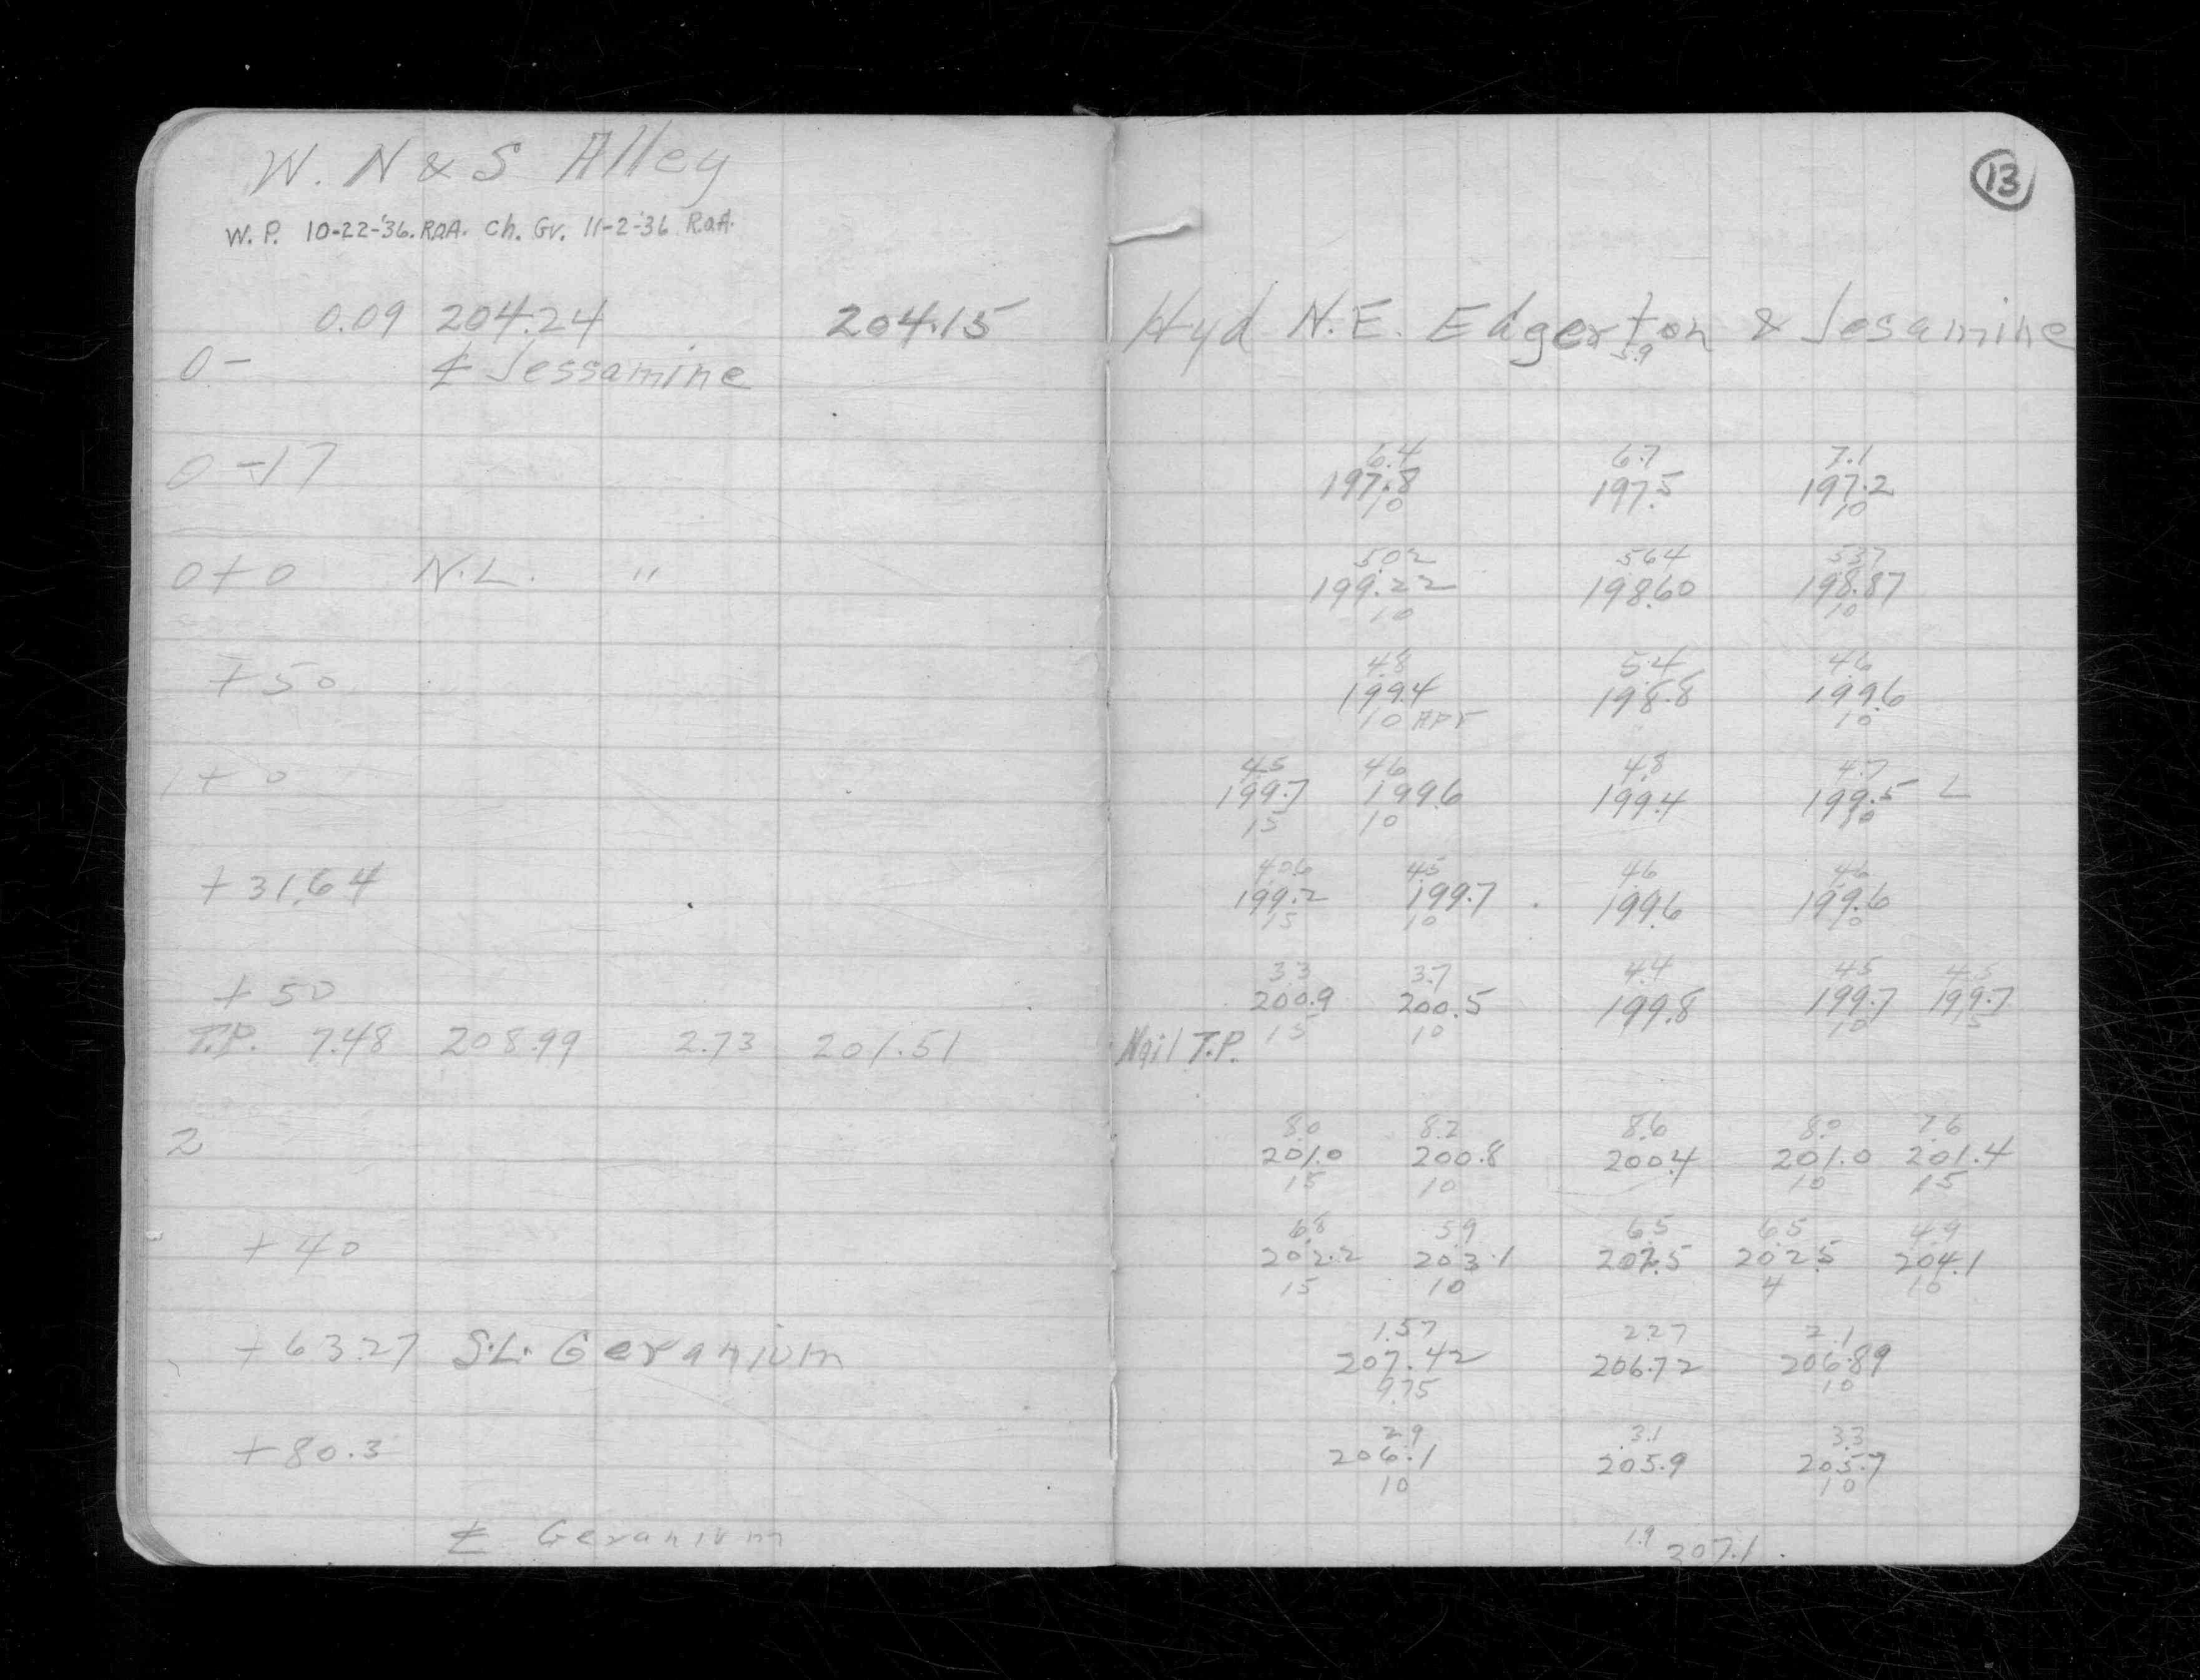 W. N & S Alley
W. P. 10-22-'36. RAA. Ch. Gr. 11-2-'36 RAA.
0.09 204.24 204.15
0- ⅊ Jessamine
0-17
0+0 N.L. "
+50
1+0
+31.64
+50
T.P. 7.48 208.99 2.73 201.51
2
+40
+63.27 S.L. Geranium
+80.3
⅊ Geranium
13
Hyd N.E. Edgerton & Jesamine
5.9
6.4 6.7 7.1
197.8 197.5 197.2
10 10
5.02 5.64 5.37
199.22 198.60 198.87
10 10
4.8 5.4 4.6
199.4 198.8 199.6
10 APr 10
4.5 4.6 4.8 4.7
199.7 199.6 199.4 199.5 L
15 10 10
4.5 4.6 4.6
199.2 199.7 199.6 199.6
15 10 10
3.3 3.7 4.4 4.5 4.5
200.9 200.5 199.8 199.7 199.7
15 10 10 15
Nail T.P.
8.0 8.2 8.6 8.0 7.6
201.0 200.8 200.4 201.0 201.4
15 10 10 15
6.8 5.9 6.5 6.5 4.9
202.2 203.1 202.5 202.5 204.1
15 10 4 10
1.57 2.27 2.1
207.42 206.72 206.89
9.75 10
2.9 3.1 3.3
206.1 205.9 205.7
10 10
1.9 207.1